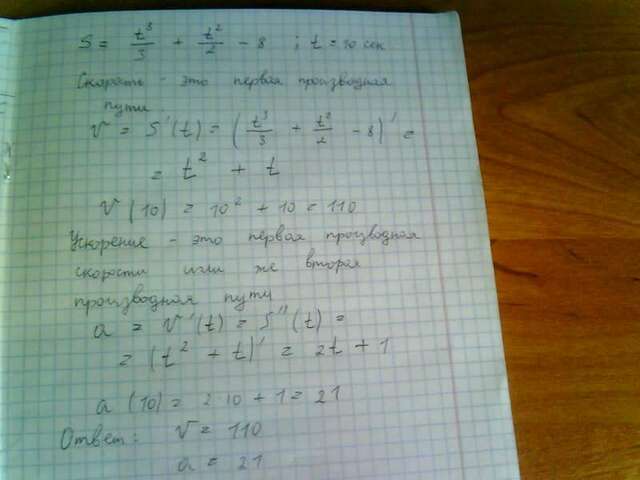 S = t³/3 + t²/2 - 8 ; t = 10 сек
Скорость - это первая производная
пути.
V = S'(t) = (t³/3 + t²/2 - 8)' =
= t² + t
V (10) = 10² + 10 = 110
Ускорение - это первая производная
скорости или же вторая
производная пути
a = V'(t) = S''(t) =
= (t² + t)' = 2t + 1
a (10) = 2·10 + 1 = 21
Ответ: V = 110
a = 21